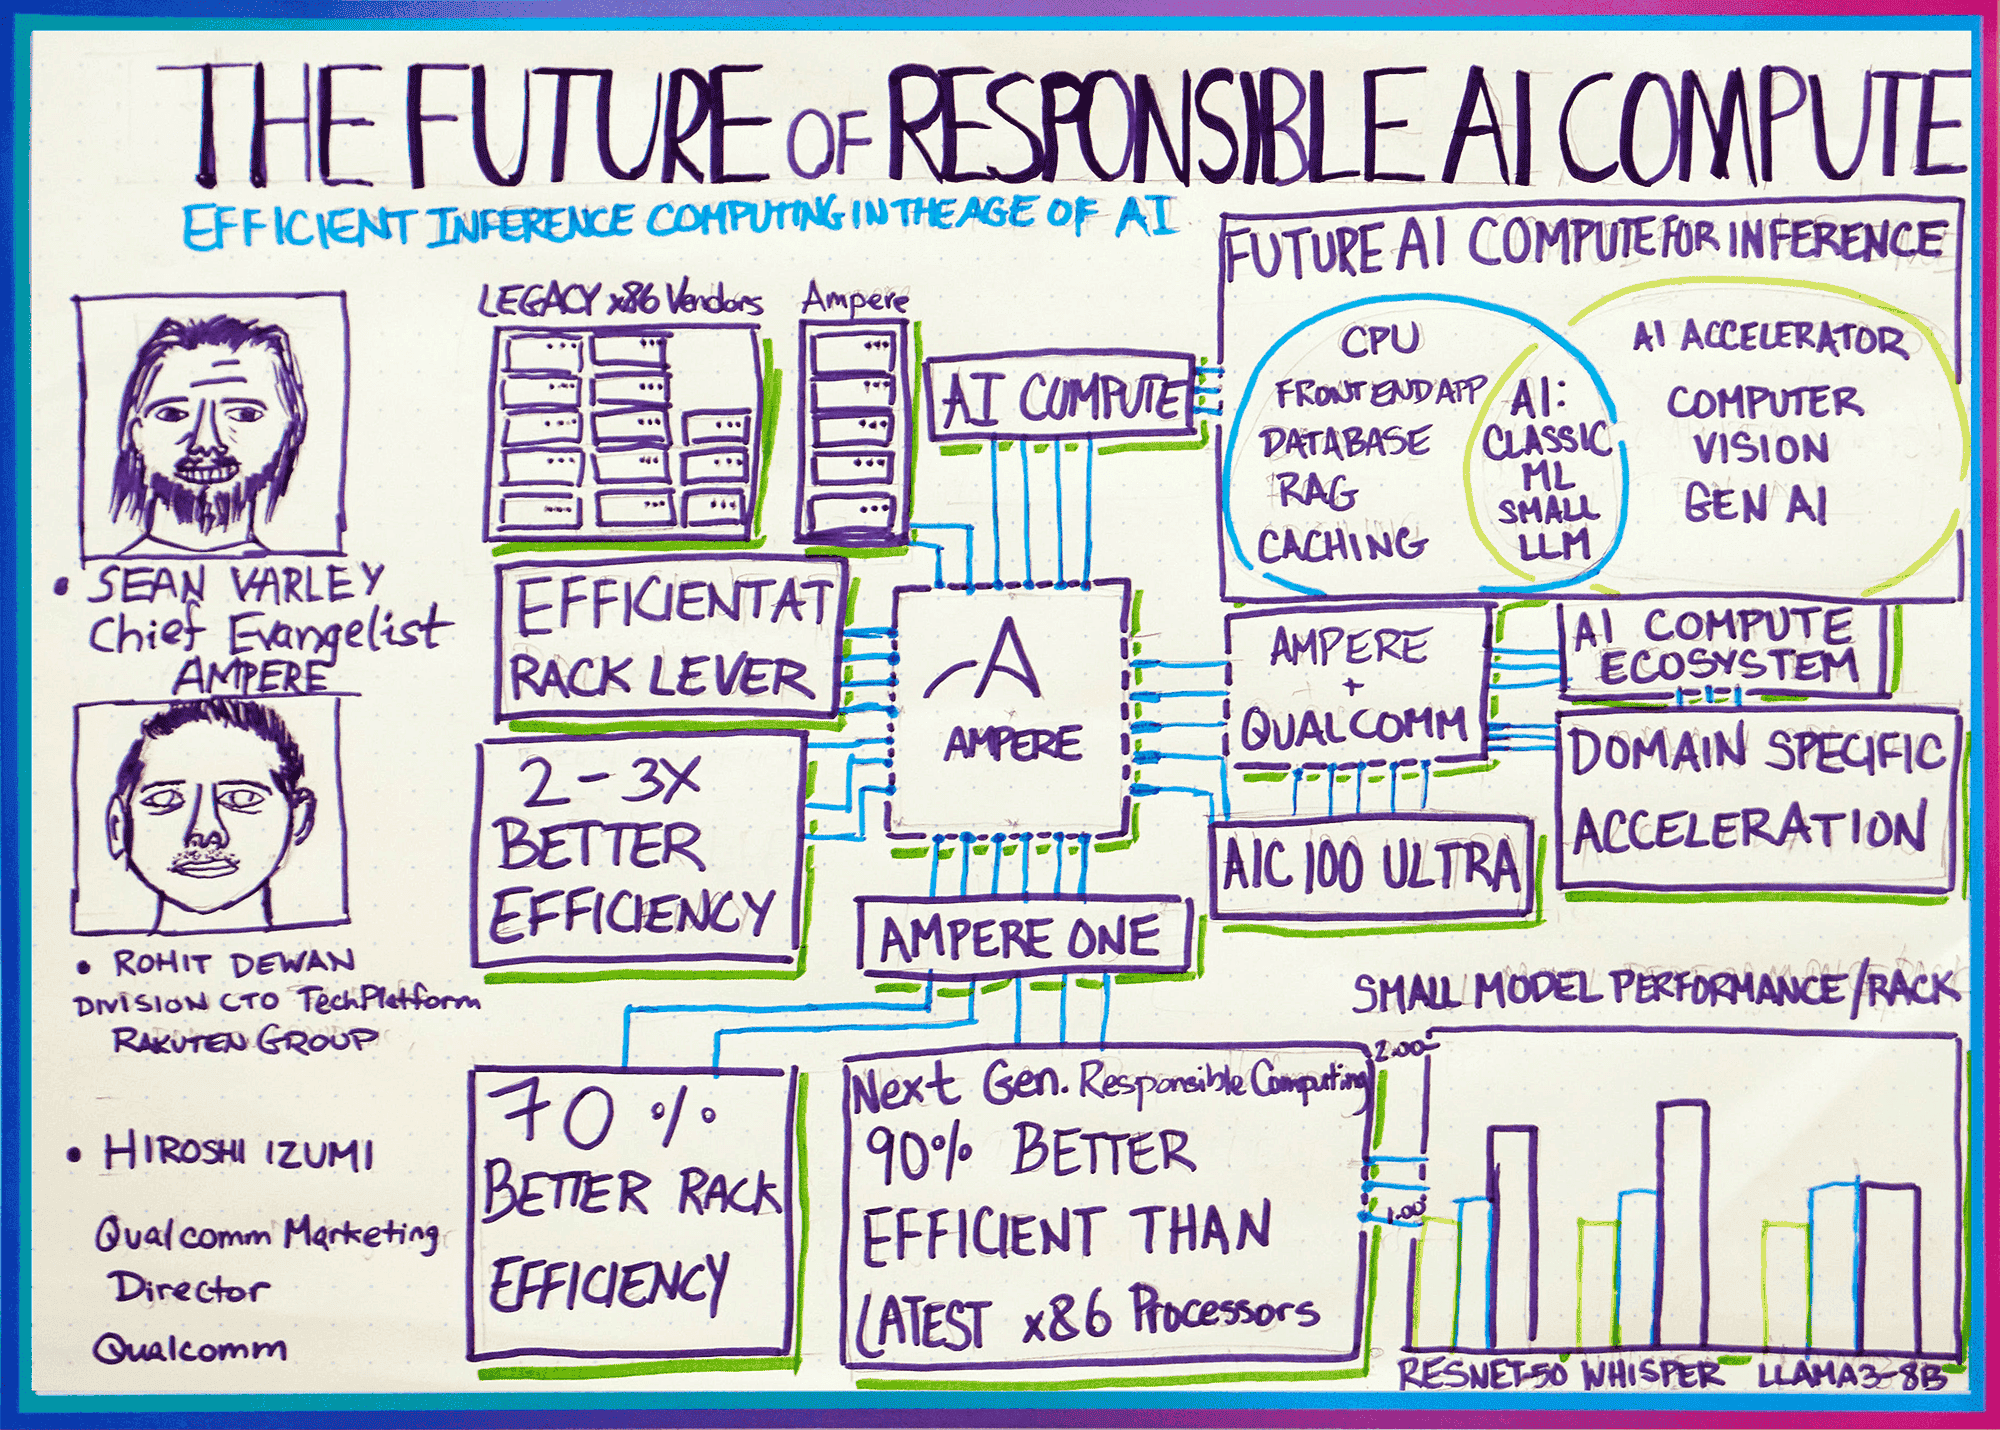 THE FUTURE OF RESPONSIBLE AI COMPUTE
EFFICIENT INFERENCE COMPUTING IN THE AGE OF AI
• SEAN VARLEY
Chief Evangelist
AMPERE
• ROHIT DEWAN
DIVISION CTO TechPlatform
RAKUTEN GROUP
• HIROSHI IZUMI
Qualcomm Marketing
Director
Qualcomm
LEGACY x86 Vendors
Ampere
EFFICIENT AT
RACK LEVER
2-3X
BETTER
EFFICIENCY
AI COMPUTE
A
AMPERE
AMPERE ONE
70%
BETTER RACK
EFFICIENCY
Next Gen. Responsible Computing
90% BETTER
EFFICIENT THAN
LATEST x86 Processors
FUTURE AI COMPUTE FOR INFERENCE
CPU
FRONT END APP
DATABASE
RAG
CACHING
AI:
CLASSIC
ML
SMALL
LLM
AI ACCELERATOR
COMPUTER
VISION
GEN AI
AMPERE
+
QUALCOMM
AI COMPUTE
ECOSYSTEM
DOMAIN SPECIFIC
ACCELERATION
AIC 100 ULTRA
SMALL MODEL PERFORMANCE/RACK
2.00
1.00
RESNET-50 WHISPER LLAMA3-8B